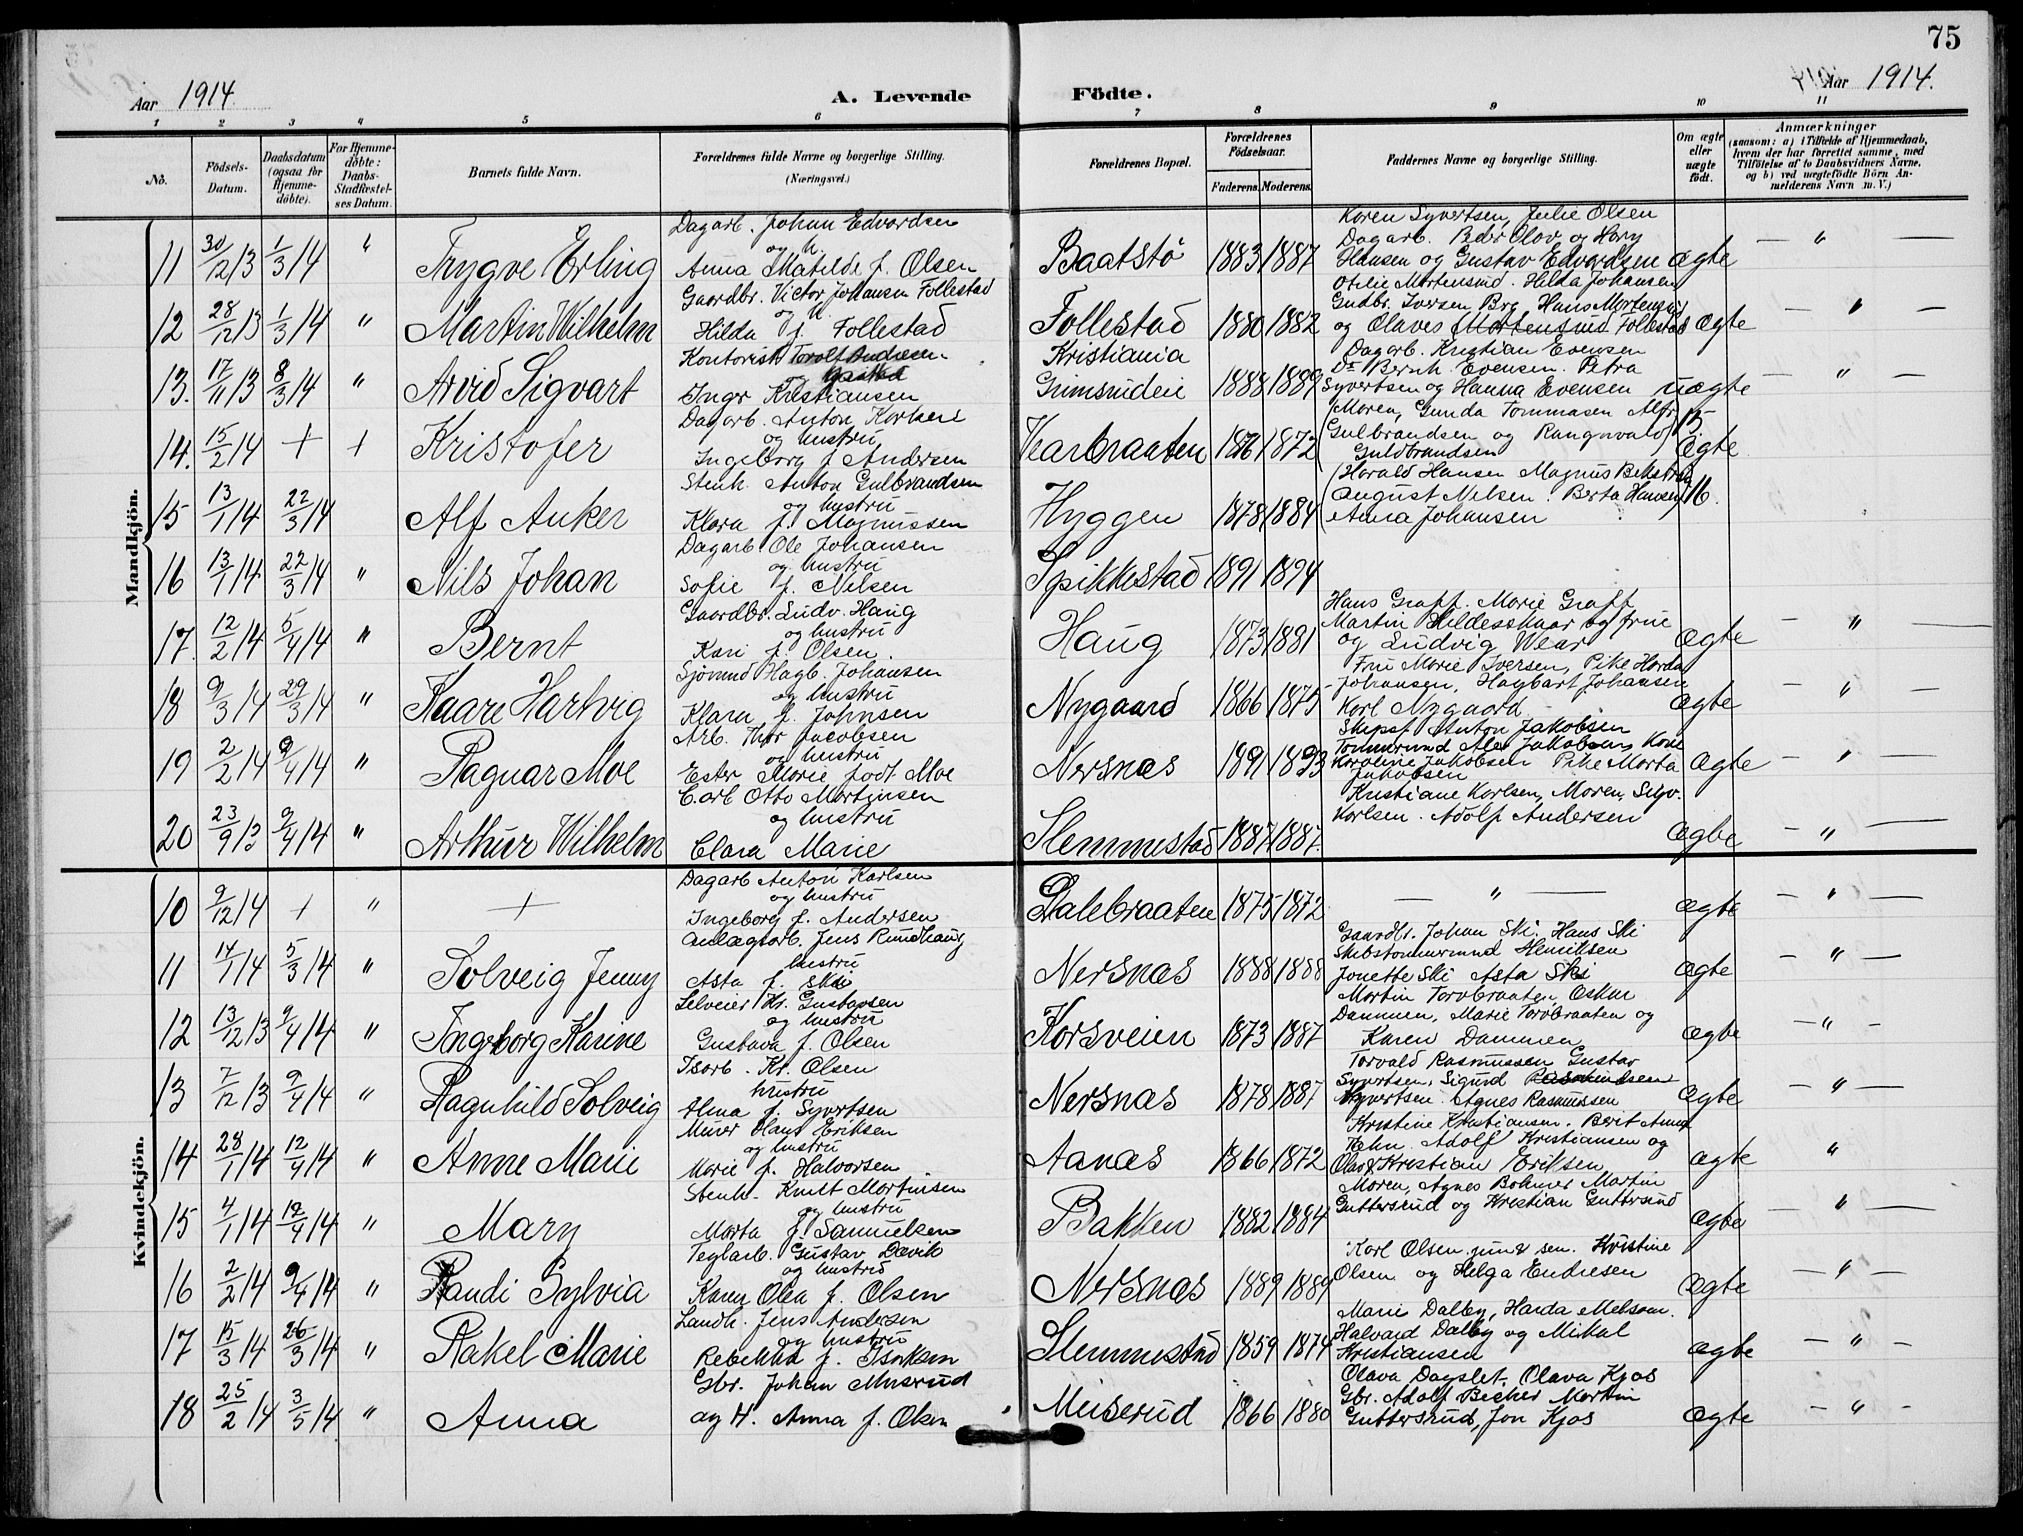 75
Aar 1914.
A. Levende
Födte.
Aar 1914.
1 2 3 4 5 6 7 8 9 10 11
No.
Födsels-Datum.
Daabsdatum (ogsaa for Hjemme-döbte).
For Hjemme-döbte: Daabs-Stadfæstel-ses Datum.
Barnets fulde Navn.
Forældrenes fulde Navne og borgerlige Stilling.
(Næringsvei.)
Forældrenes Bopæl.
Forældrenes Födselsaar.
Faderens. Moderens.
Faddernes Navne og borgerlige Stilling.
Om ægte eller uægte födt.
Anmærkninger
(saasom: a) i Tilfælde af Hjemmedaab, hvem der har forrettet samme, med Tilföielse af to Daabsvidners Navne, og b) ved uægtefödte Börn An-melderens Navn m. V.)
Mandkjön.
Dagarb. Johan Edvardsen
og h.
Karen Syvertsen, Julie Olsen
Dagarb. Peder Olov og Harry
11 30/12 13 1/3 14 " Trygve Erling Anna Matilde f. Olsen Baatstö 1883 1887 Hansen og Gustav Edvardsen ægte — " —
Gaardbr. Victor Johansen Follestad
og h.
Otilie Mortensrud. Hilda Johansen
Gudbr. Iversen Brg Hans Mortensrud
12 28/12 13 1/3 14 " Martin Wilhelm Hilda f. Follestad Follestad 1880 1882 og Olaves Mortensrud Follestad ægte — " —
Kontorist Torolf Andresen
Kristiania
Dagarb. Kristian Evensen
Do Bernh. Evensen. Petra
13. 17/11 13 8/3 14 " Arvid Sigvart Inger Kristiansen Grimsrudeie 1888 1889 Syvertsen og Hanna Evensen uægte — " —
Dagarb. Anton Karlsen
og hustru
(Moren, Gunda Tommasen Alfr.
Gulbrandsen og Rangnvald) 15.
14. 15/2 14 + + Kristofer Ingeborg f. Andersen Kearbraaten 1876 1872 Guldbrandsen ægte
Stenh. Anton Gulbrandsen
og hustru
(Harald Hansen Magnus Bekstrøm
August Nelsen. Berta Hansen) 16.
15 13/1 14 22/3 14 Alf Anker Klara f. Magnussen Hyggen 1878 1884 Anna Johansen
Dagarb. Ole Johansen
og hustru
16 13/1 14 22/3 14 " Nils Johan Sofie f. Nelsen Spikkestad 1891 1894
Gaardbr. Ludv. Haug
og hustru
Hans Graff. Marie Graff
Martin Hildesskaar og frue
17. 12/2 14 5/4 14 " Bernt Kari f. Olsen. Haug 1873 1881 og Ludvig Wear ægte — " —
Sjömnd Hagb. Johansen
og hustru
Frue Marie Iversen, Pike Harda
Johansen, Haybart Johansen
18 9/3 14 29/3 14 " Kaare Hartvig Klara f. Johnsen Nygaard 1866 1875 Karl Nygaard ægte — " —
Arb. Thor Jacobsen
og hustru
Skipsf Anton Jakobsen
Tommermnd Alex Jakobsen, Kone
Karoline Jakobsen Pike Marta
19 2/2 14 9/4 14 " Ragnar Moe Ester Marie født Moe Nersnæs 1891 1893 Jakobsen ægte — " —
Carl Otto Martinsen
og hustru
Kristiane Karlsen, Moren, Sigv.
Karlsen. Adolf Andersen
20 23/9 13 9/4 14 " Arthur Wilhelm Clara Marie Slemmestad 1887 1887. ægte — " —
Kvindekjön.
Dagarb Anton Karlsen
og hustru
10 9/12 14 + " + Ingeborg f. Andersen Dalebraaten 1875 1872 — " — ægte — " —
Anlægsarb. Jens Rundhaug
hustru
Gaardbr. Johan Ski. Hans Ski
Skibstommermnd Henriksen
11 14/1 14 5/3 14 " Solveig Jenny Asta f. Ski Nersnæs 1888 1888 Jonette Ski Asta Ski ægte — " —
Selveier Kr. Gustavsen
og hustru
Martin Torvbraaten, Oskar
Dammen, Marie Torvbraaten og
12 13/12 13 9/4 14 " Ingeborg Karine Gustava f. Olsen Korsveien 1873 1887 Karen Dammen ægte — " —
Isarb. Kr. Olsen
hustru
Torvald Rasmussen Gustav
Syvertsen, Sigurd Rasmussen
13 7/12 13 9/4 14 " Ragnhild Solveig Alma f. Syvertsen Nersnæs 1878 1887 Syvertsen. Agnes Rasmussen ægte — " —
Murer Hans Eriksen
og hustru
Kristine Kristiansen. Berit Anna
Hehn. Adolf Kristiansen og
14 28/1 14 12/4 14 " Anne Marie Marie f. Halvorsen Aanæs 1866 1872 Olav & Kristian Eriksen ægte "
Stenh. Knut Martinsen
og hustru
Moren, Agnes Bohmer Martin
Guttersrud og Kristian Guttersrud
15 4/1 14 12/4 14 " Mary Marta f. Samuelsen Bakken 1882 1884 ægte — " —
Teglarb. Gustav Davik
og hustru
Karl Olsen jun & sen. Kristine
16 2/2 14 9/4 14 " Randi Sylvia Karen Olea f. Olsen Nersnæs 1889 1889 Olsen og Helga Endresen ægte — " —
Landh. Jens Andersen
og hustru
Marie Dalby, Harda Melsom.
Halvard Dalby og Mikal
17 15/3 14 26/3 14 " Rakel Marie Rebekka f. Isaksen Slemmestad 1859 1874 Kristiansen ægte — " —
Gbr. Johan Muserud
Olava Dagslet. Olava Kjos
Gbr. Adolf Becker Martin
18 25/2 14 3/5 14 " Anna og H. Anna f. Olsen Muserud 1866 1880 Guttersrud, Jon Kjos ægte — " —